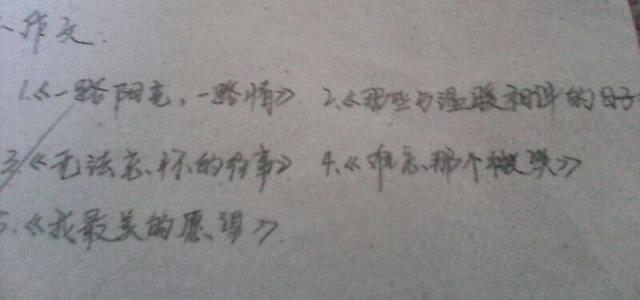 作文.
1.《一路阳光,一路情》 2.《那些与温暖相伴的日子
3.《无法忘怀的往事》 4.《难忘那个微笑》
5.《我最美的愿望》